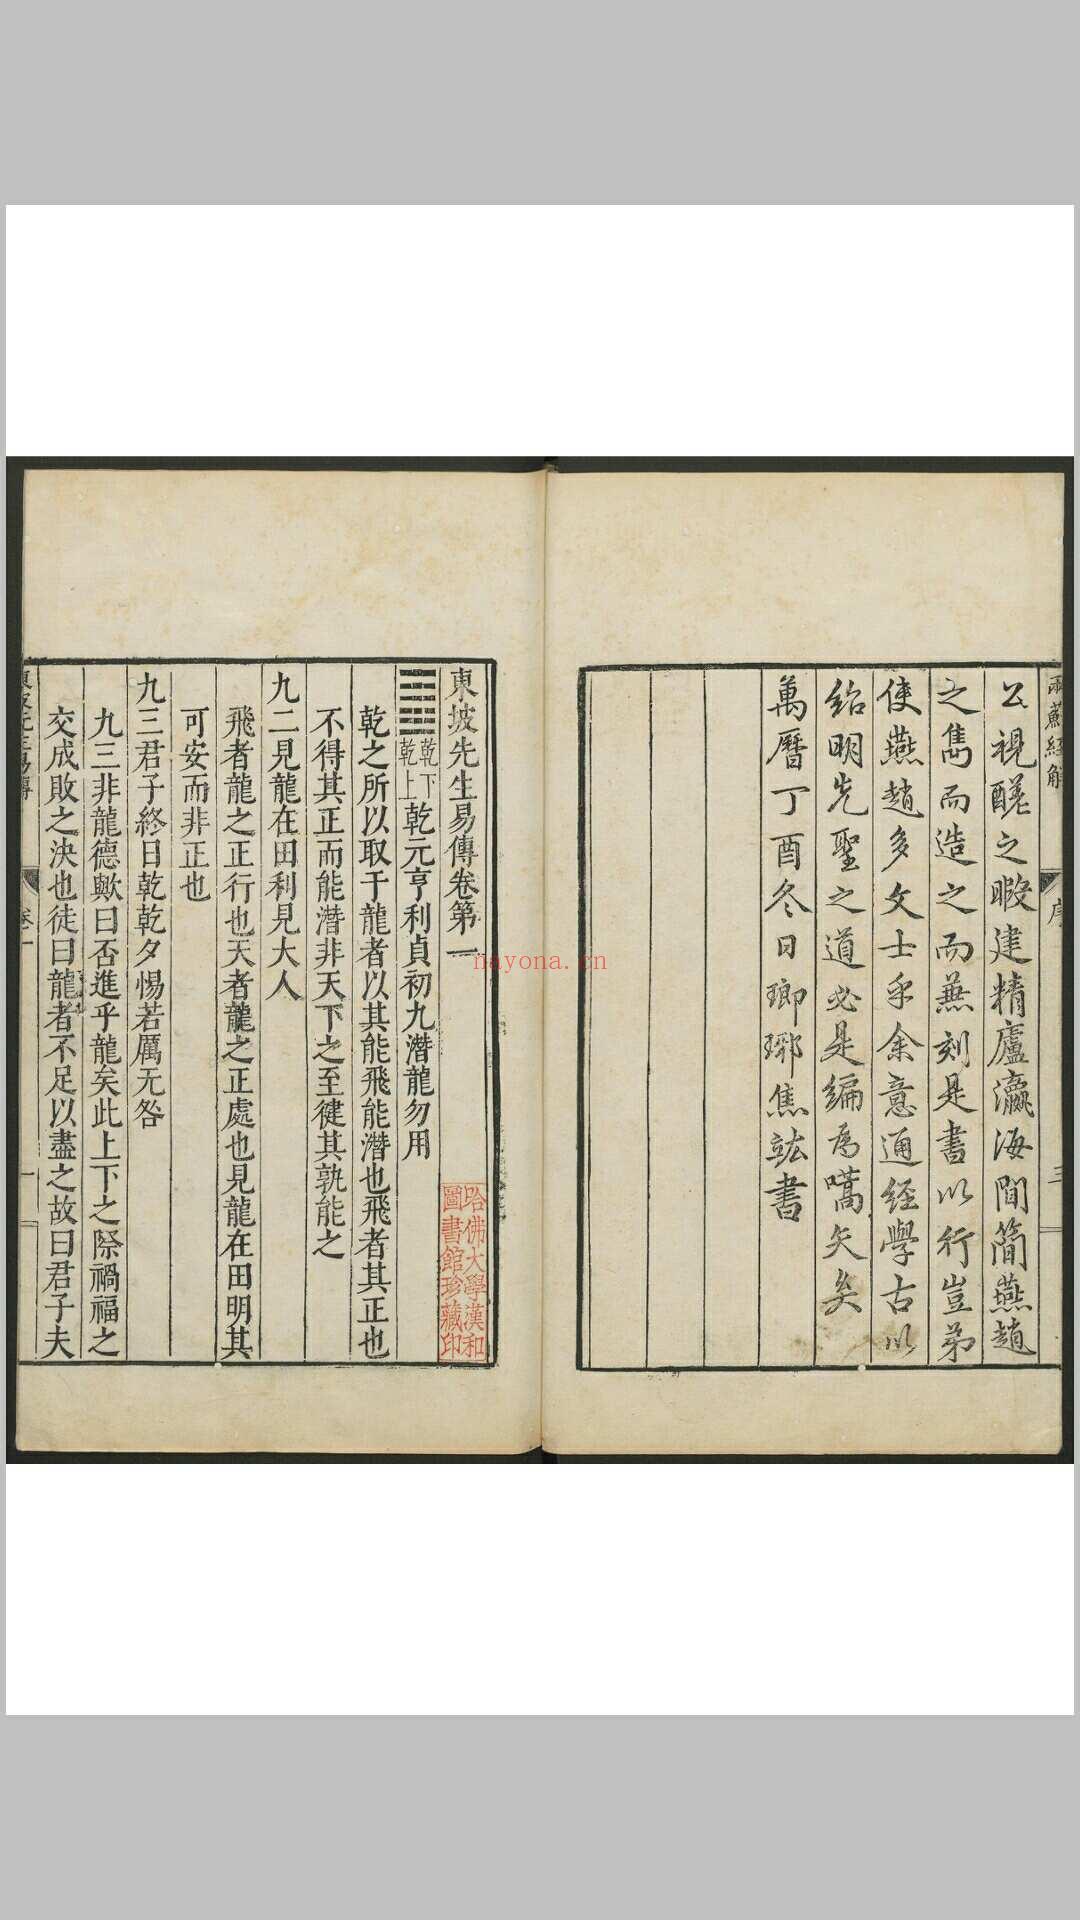 兩蘇經解
序
三
公視醝之暇建精廬瀛海間簡燕趙
之雋而造之而無刻是書以行豈第
使燕趙多文士乎余意通經學古以
紹明先聖之道必是編為嚆矢矣
萬曆丁酉冬日瑯琊焦竑書
東坡先生易傳卷第一
哈佛大學漢和
圖書館珍藏印
乾下
乾上
乾元亨利貞初九潛龍勿用
乾之所以取于龍者以其能飛能潛也飛者其正也
不得其正而能潛非天下之至健其孰能之
九二見龍在田利見大人
飛者龍之正行也天者龍之正處也見龍在田明其
可安而非正也
九三君子終日乾乾夕惕若厲无咎
九三非龍德歟曰否進乎龍矣此上下之際禍福之
交成敗之決也徒曰龍者不足以盡之故曰君子夫
東坡先生易傳
卷一
一
nayona.cn